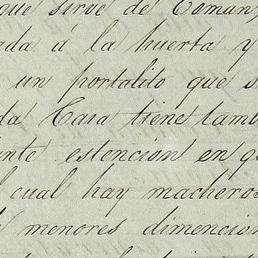 que sirve de Comun,
nda á la huerta y
un portalito que s
da Casa tiene tamb
ante estencion en q
l cual hay macheros
menores dimencion